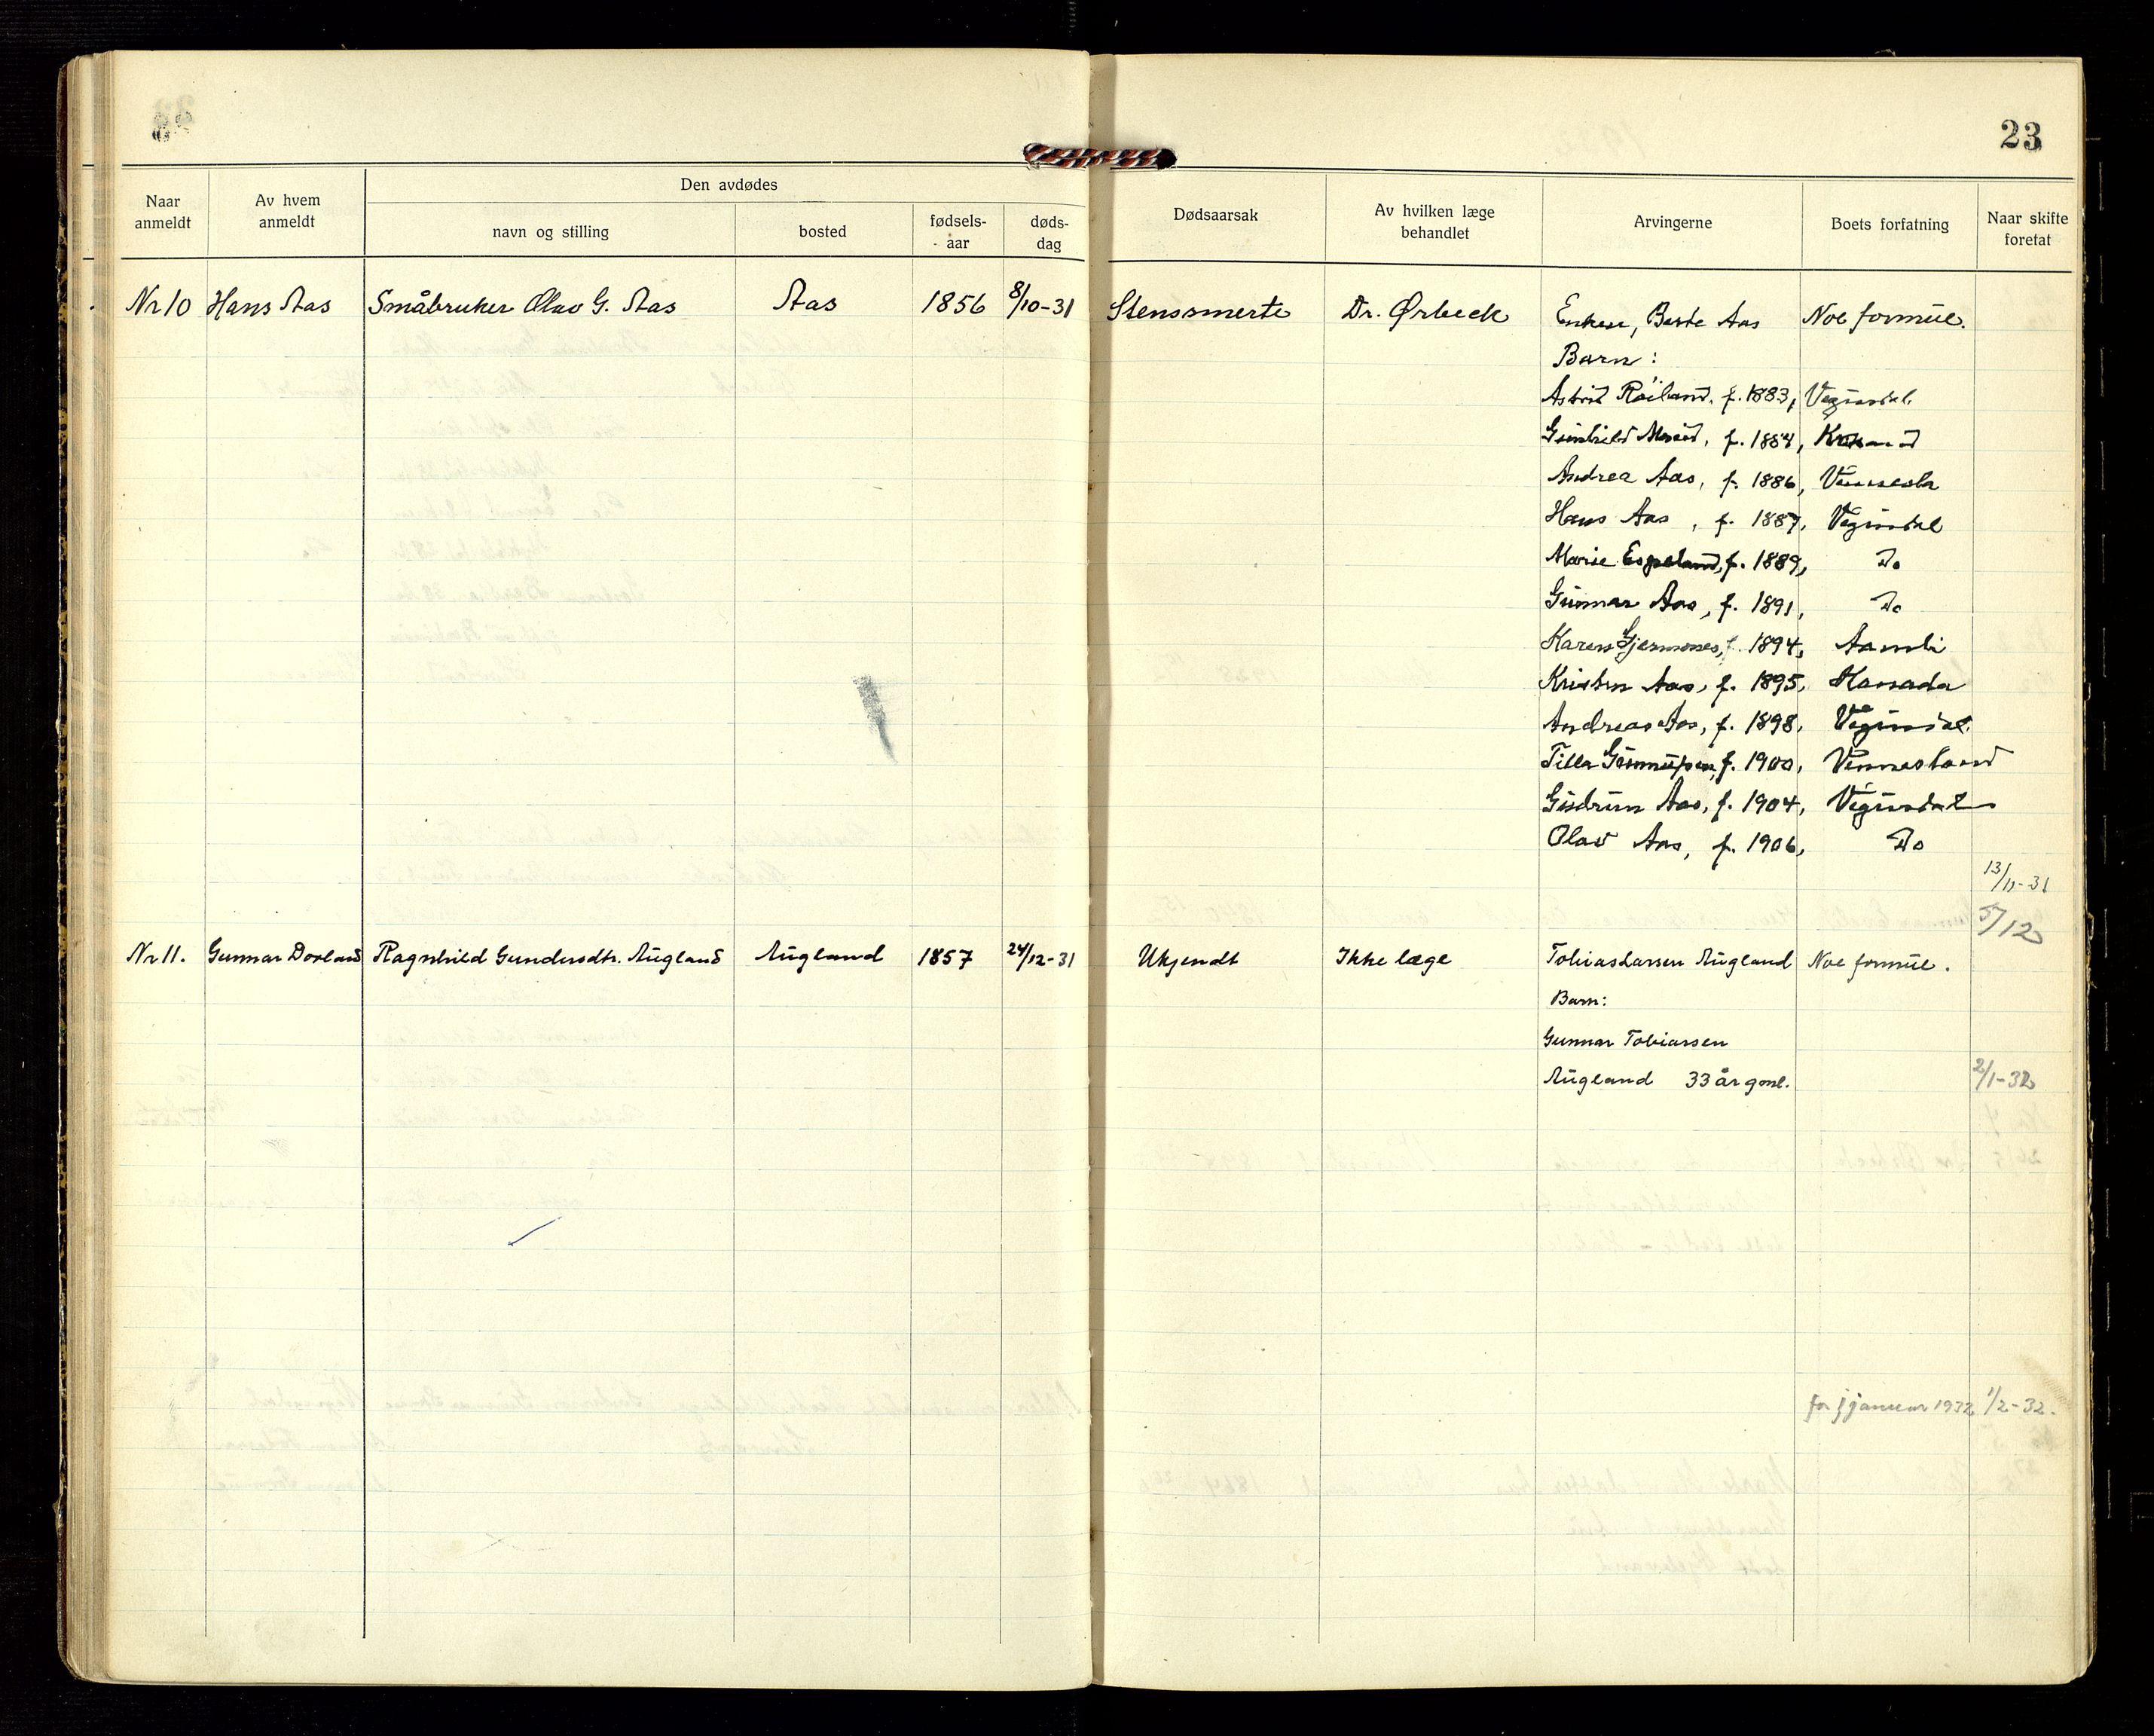 23
Naar anmeldt
Av hvem anmeldt
Den avdødes
navn og stilling
bosted
fødsels-aar
døds-dag
Dødsaarsak
Av hvilken læge behandlet
Arvingerne
Boets forfatning
Naar skifte foretat
Nr 10 Hans Aas Småbruker Olav G. Aas Aas 1856 8/10-31 Stenssmerte Dr. Ørbeck Enken, Berte Aas Noe formue.
Barn:
Astrid Røiland, f. 1883, Vegusdal
Gunhild f. 1884,
Andrea Aas, f. 1886, Vennesla
Hans Aas, f. 1887, Vegusdal
Marie Espeland, f. 1889, Do
Gunnar Aas, f. 1891, Do
Karen f. 1894, Aamli
Kristen Aas, f. 1895, Kanada
Andreas Aas, f. 1898, Vegusdal
Tilla f. 1900,
Gudrun Aas, f. 1904, Vegusdal
Olav Aas, f. 1906, Do
13/11-31
5/12
Nr 11. Gunnar Dovland Ragnhild Gundersdtr. Augland Augland 1857 24/12-31 Ukjendt Ikke læge Tobias Larsen Augland Noe formue.
Barn:
Gunnar Tobiassen
Augland 33 år gml. 2/1-32
for januar 1932 1/2-32.